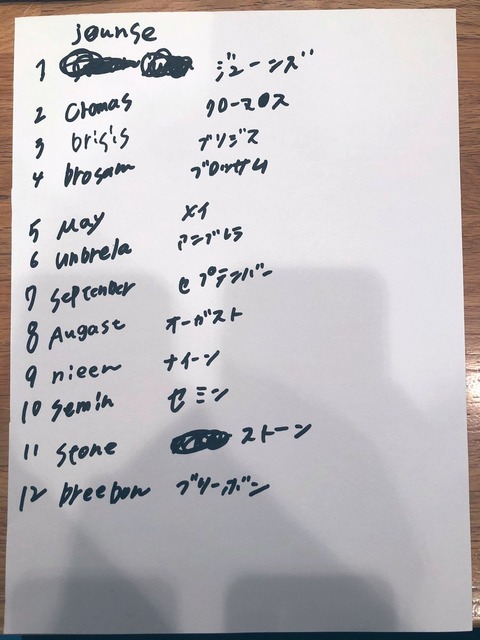 jounse
1 ジューンズ
2 cromas クローマス
3 brisis ブリジス
4 brosam ブロッサム
5 May メイ
6 unbrela アンブレラ
7 september セプテンバー
8 Augast オーガスト
9 nieen ナイーン
10 semin セミン
11 stone ストーン
12 breebon ブリーボン